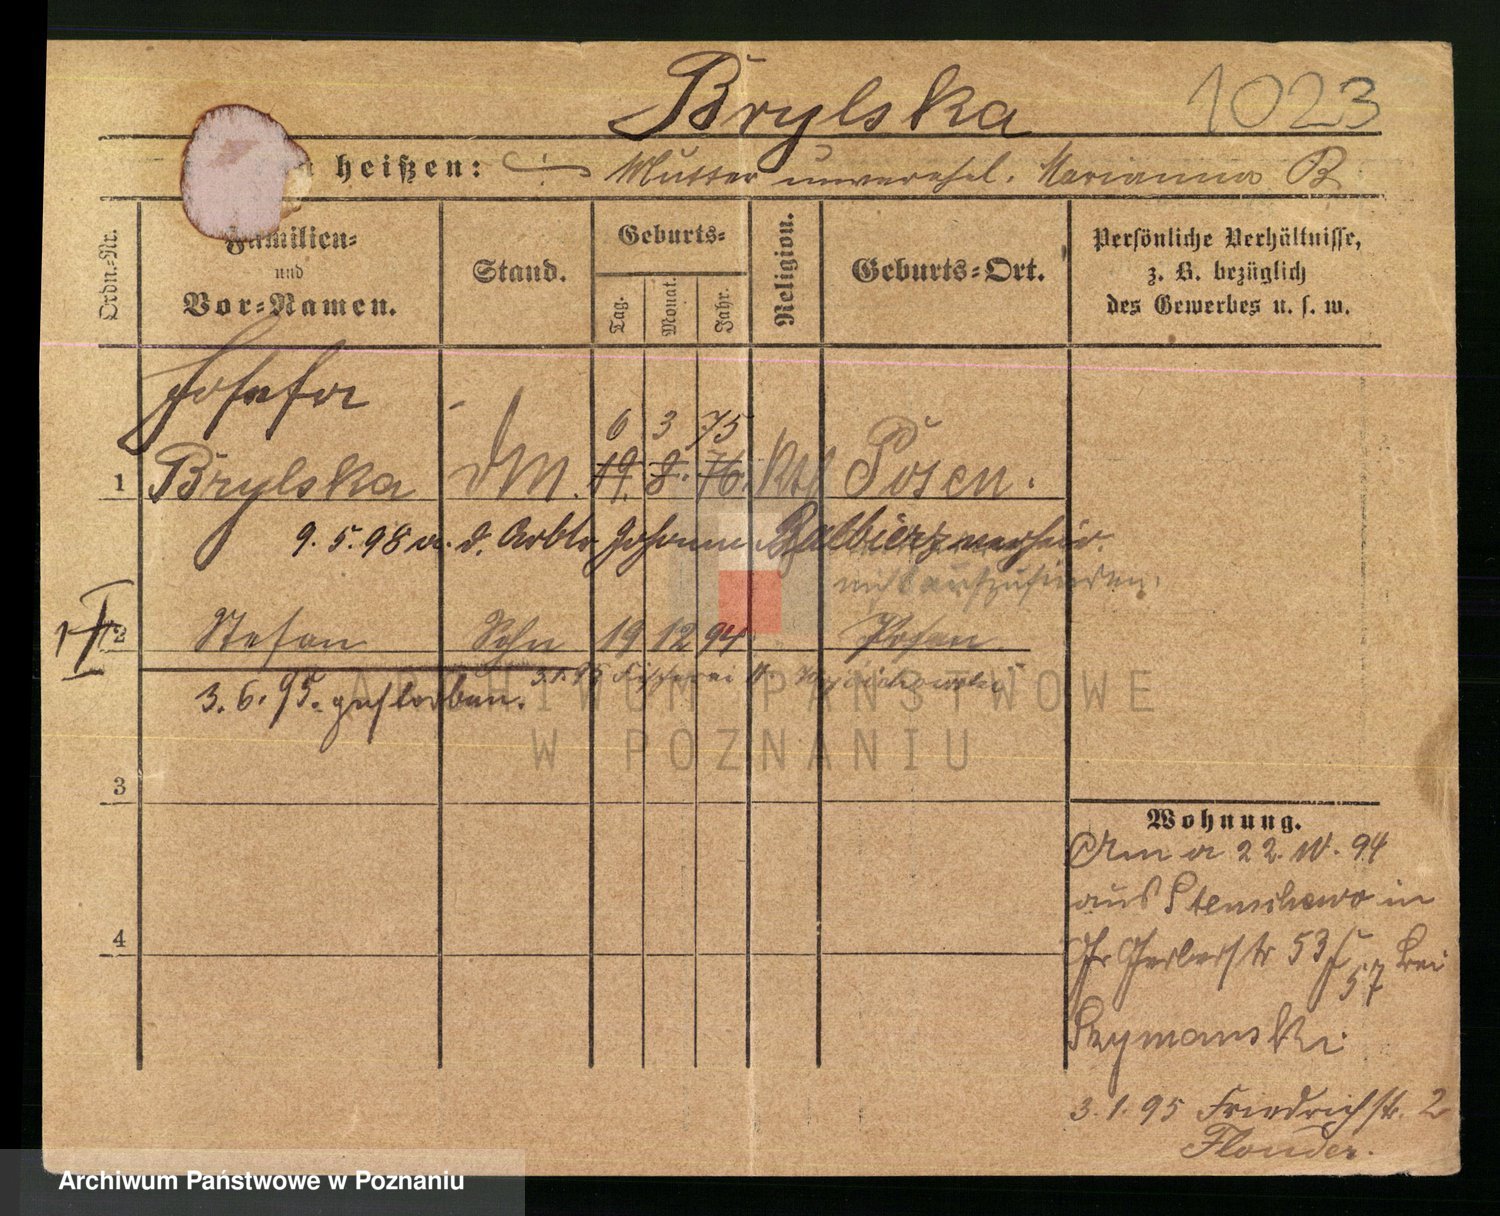 Brylska 1023
heißen: Mutter unverehel. Marianna B
Ordn.-Nr.
Familien-
und
Vor-Namen.
Stand.
Geburts-
Tag.
Monat.
Jahr.
Religion.
Geburts-Ort.
Persönliche Verhältnisse,
z. B. bezüglich
des Gewerbes u. s. w.
Josefa
6 3 75
1 Brylska DM. 19. 8. 76. Kth Posen.
9. 5. 98 a. d. Arbtr Johann Balbierz verheir.
nicht aufzufinden.
2 Stefan Sohn 19 12 94 Posen
3. 1. 95
3. 6. 95. gestorben.
ARCHIWUM PAŃSTWOWE
W POZNANIU
3
4
Wohnung.
Am a 22. IV. 94
aus Stenschewo in
Gr Gerberstr 53 bei
57
Szymanski
3. 1. 95 Friedrichstr. 2
Flonder.
Archiwum Państwowe w Poznaniu